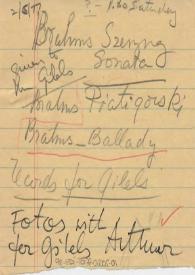 2/6/77 ? - 1.30 Saturday
Brahms Szeryng
Sonata
given to
Gilels
Brahms Piatigorski
Brahms - Ballady
Records for Gilels
Fotos with
for Gilels Arthur